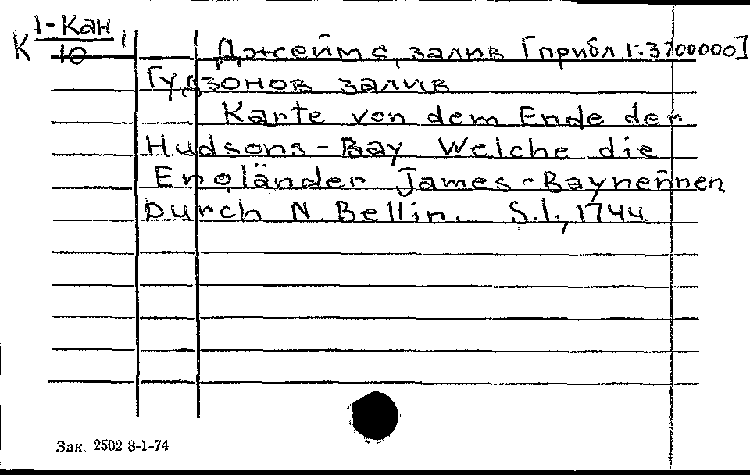 К 1-Кан
10
Джеймс, залив [прибл 1:3700000]
Гудзонов залив
Karte von dem Ende der
Hudsons-Bay Welche die
Engländer James-Baynennen
Durch N Bellin. S.l., 1744
Зак. 2502 8-1-74